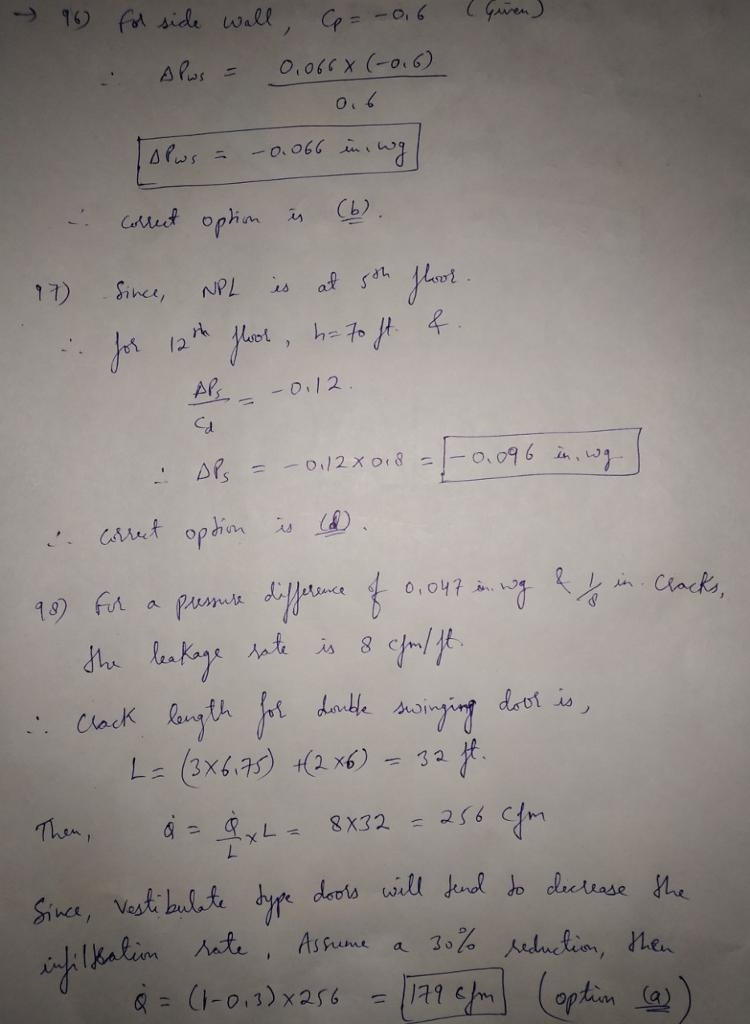 → 96) for side wall, Cp = -0.6 (Given)
∴ ΔPws = 0.066 X (-0.6)
0.6
ΔPws = -0.066 in. wg
∴ correct option is (b).
97) Since, NPL is at 5th floor.
∴ for 12th floor, h = 70 ft. &
ΔPs / Cd = -0.12.
∴ ΔPs = -0.12 X 0.8 = -0.096 in. wg
∴ correct option is (d).
98) For a pressure difference of 0.047 in. wg & 1/8 in. cracks,
the leakage rate is 8 cfm/ft.
∴ Crack length for double swinging door is,
L = (3X6.75) + (2X6) = 32 ft.
Then, Q̇ = Q̇/L x L = 8X32 = 256 cfm
Since, vestibulate type doors will tend to decrease the
infiltration rate, Assume a 30% reduction, then
Q̇ = (1-0.3) X 256 = 179 cfm (option (a))